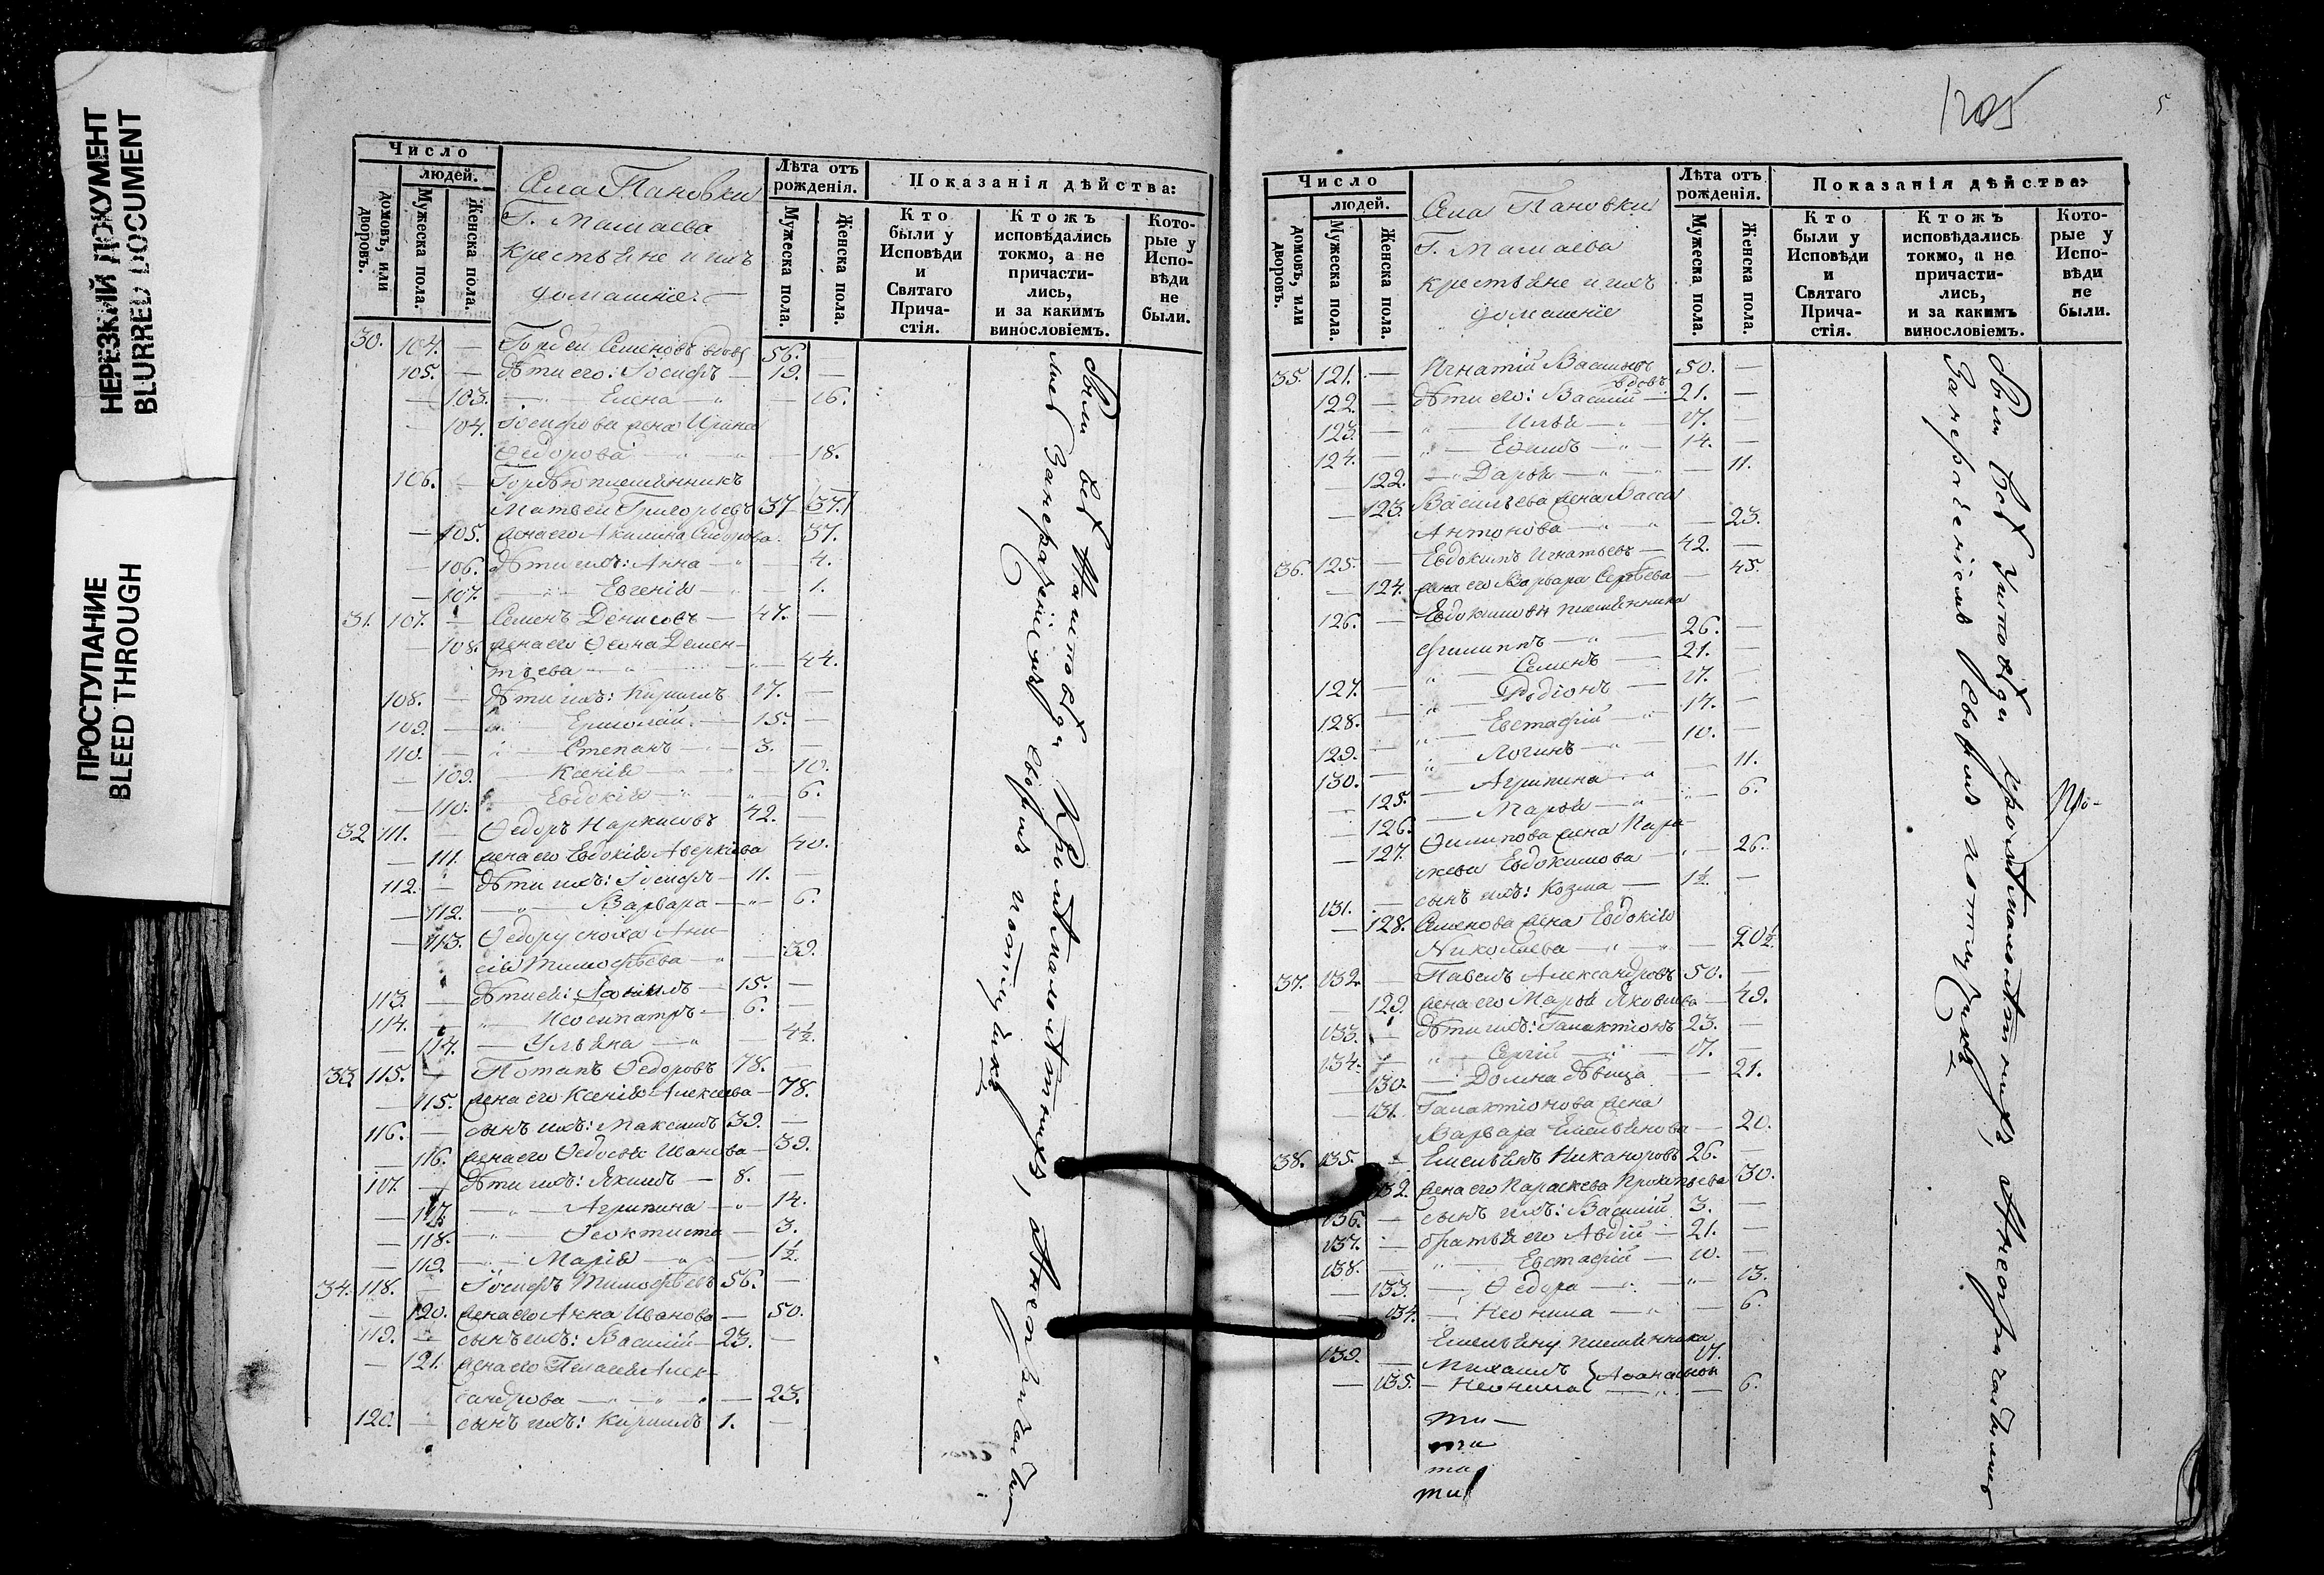 НЕРЕЗКИЙ ДОКУМЕНТ
BLURRED DOCUMENT
ПРОСТУПАНИЕ
BLEED THROUGH
Число
людей.
домовъ, или дворовъ.
Мужеска пола.
Женска пола.
Села Пановки
Г. Мамаева
крестьяне и ихъ
домашніе
Лѣта отъ рожденія.
Мужеска пола.
Женска пола.
Показанія дѣйства:
Кто были у Исповѣди и Святаго Прича-стія.
Ктожъ исповѣдались токмо, а не причасти-лись, и за какимъ винословіемъ.
Кото-рые у Испо-вѣди не были.
30. 104. — Гордей Семеновъ вдовъ 56.
105. — дѣти его: Іосифъ — 19. —
— 103. — " — Елена — " — 16.
104. Іосифова жена Ирина
Ѳедорова — " — " — 18.
106. — Гордѣю племянникъ
Матвей Григорьевъ 37 37.
— 105. жена его Акилина Сидорова 37.
— 106. дѣти ихъ: Анна — " — 4.
— 107. — " — Евгенія — " — 1.
31. 107. — Семенъ Денисовъ — 47. —
— 108. жена его Ѳеона Демен-
тьева — " — 44.
108. — дѣти ихъ: Кирилъ 17. —
109. — " — Ермолай — 15. —
110. — " — Степанъ — 3. —
— 109. — Ксенія — " — 10.
— 110. — Евдокія — " — 6.
32 111. — Ѳедоръ Наркисовъ 42. —
— 111. жена его Евдокія Аверкіева 40.
112. — дѣти ихъ: Іосифъ — 11. —
— 112. — " — Варвара — " — 6.
— 113. Ѳедору сноха Ани-
сія Тимофѣева — " — 39.
113. — дѣти ей: 15. —
114. — " — 6. —
— 114. — Ульяна — " — 4½.
33 115. — Потапъ Ѳедоровъ 78. —
— 115. жена его Ксенія Алексѣева — 78.
116. — сынъ ихъ: Максимъ 39. —
— 116. жена его Ѳедосья Иванова — 39.
117. — дѣти ихъ: Якимъ — 8. —
— 117. — " — Агрипина — " — 14.
— 118. — " — Ѳеоктиста — 3.
— 119. — " — Марія — " — 1½.
34. 118. — Іосифъ Тимофѣевъ 56. —
— 120. жена его Анна Иванова — 50.
119. — сынъ ихъ: Василій — 23. —
— 121. жена его Пелагея Алек-
сандрова — " — " — 23.
120. — сынъ ихъ: Кирилъ 1. —
были всѣ на исповѣди кромѣ малолѣтнихъ, а не прича
щены
1205
5
Число
людей.
домовъ, или дворовъ.
Мужеска пола.
Женска пола.
Села Пановки
Г. Мамаева
крестьяне и ихъ
домашніе
Лѣта отъ рожденія.
Мужеска пола.
Женска пола.
Показанія дѣйства:
Кто были у Исповѣди и Святаго Прича-стія.
Ктожъ исповѣдались токмо, а не причасти-лись, и за какимъ винословіемъ.
Кото-рые у Испо-вѣди не были.
35. 121. — Игнатій Васильевъ вдовъ 50. —
122. — дѣти его: Василій — 21. —
123. — " — Илья — " — 17. —
124. — " — Ефимъ — " — 14. —
— 122. — " — Дарья — " — 11.
— 123. Васильева жена Васса
Антонова — " — 23.
36. 125. — Евдокимъ Игнатьевъ — 42. —
— 124. жена его Варвара Сергѣева — 45.
126. — Евдокимовы племянники
Филиппъ — " — 26. —
127. — " — Семенъ — 21. —
128. — " — Родіонъ — 17. —
129. — " — Евстафій — " 14. —
130. — " — Логинъ — " 10. —
— 125. — Агрипина — " — 11.
— 126. — Марья — " — 6.
— 127. Филипова жена Пара-
скева Евдокимова — " — 26.
131. — сынъ ихъ: Козма — 1½. —
— 128. Семенова жена Евдокія
Николаева — " — 20½.
37. 132. — Павелъ Александровъ 50. —
— 129. жена его Марья Яковлева — 49.
133. — дѣти ихъ: Галактіонъ 23. —
134. — " — Сергій — " — 17. —
— 130. — Домна дѣвица — 21.
— 131. Галактіонова жена
Варвара Емельянова — 20.
38. 135. — Емельянъ Никаноровъ 26. —
132. жена его Параскева Прокопьева 30.
136. — сынъ ихъ: Василій 3. —
137. — братья его Авдій — 21. —
138. — " — Евстафій — 10. —
— 133. — " Ѳедора — " — 13.
— 134. — Неонила — " — 6.
Емельяну племянники
139. — Михаилъ 17.
— 135. — Неонила — " — 6.
ти —
ти
ти
ти
были всѣ у исповѣди кромѣ малолѣтнихъ, а не причащены